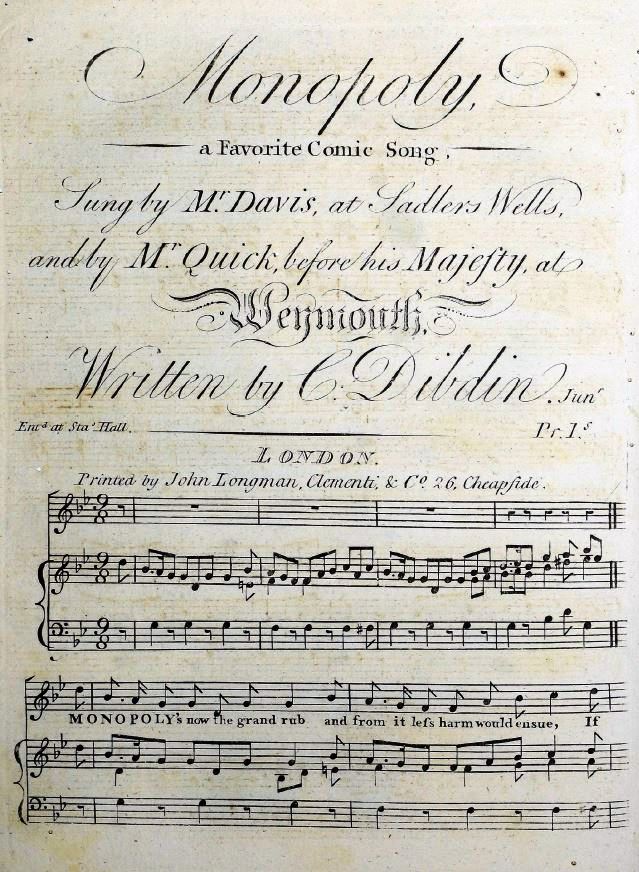 Monopoly,
a Favorite Comic Song,
Sung by Mr. Davis, at Sadlers Wells,
and by Mr. Quick, before his Majeſty, at
Weymouth,
Written by C. Dibdin. Junr
Entd at Stas Hall.
Pr. 1.s
LONDON.
Printed by John Longman, Clementi, & Co. 26, Cheapſide.
MONOPOLY's now the grand rub and from it leſs harm would ensue, If